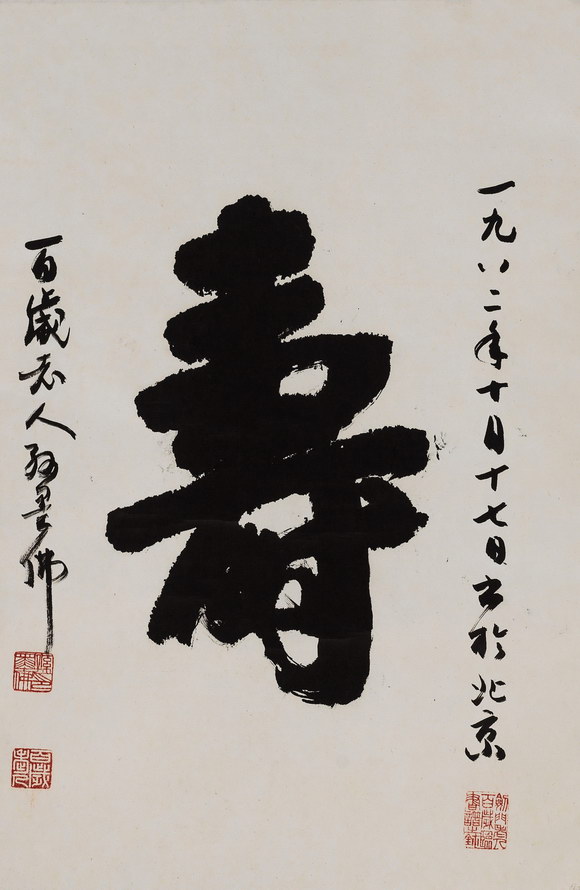 一九八二年十月十七日书於北京
壽
百歲老人孫墨佛
百歲老人